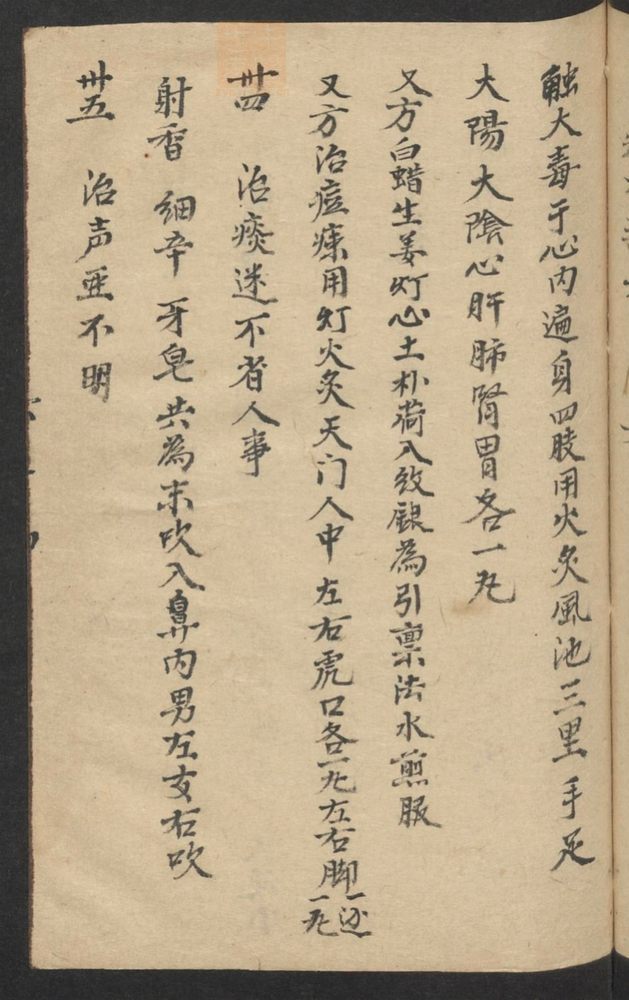 触大毒于心内遍身四肢用火灸風池三里手足
大陽大陰心肝肺腎胃各一丸
又方白蜡生姜灯心土朴荷入紋銀為引稟法水煎服
又方治痘痳用灯火灸天门人中左右虎口各一丸左右脚一丸
卅四 治痰迷不省人事
射香 細辛 牙皂 共為末吹入鼻内男左女右吹
卅五 治声亜不明